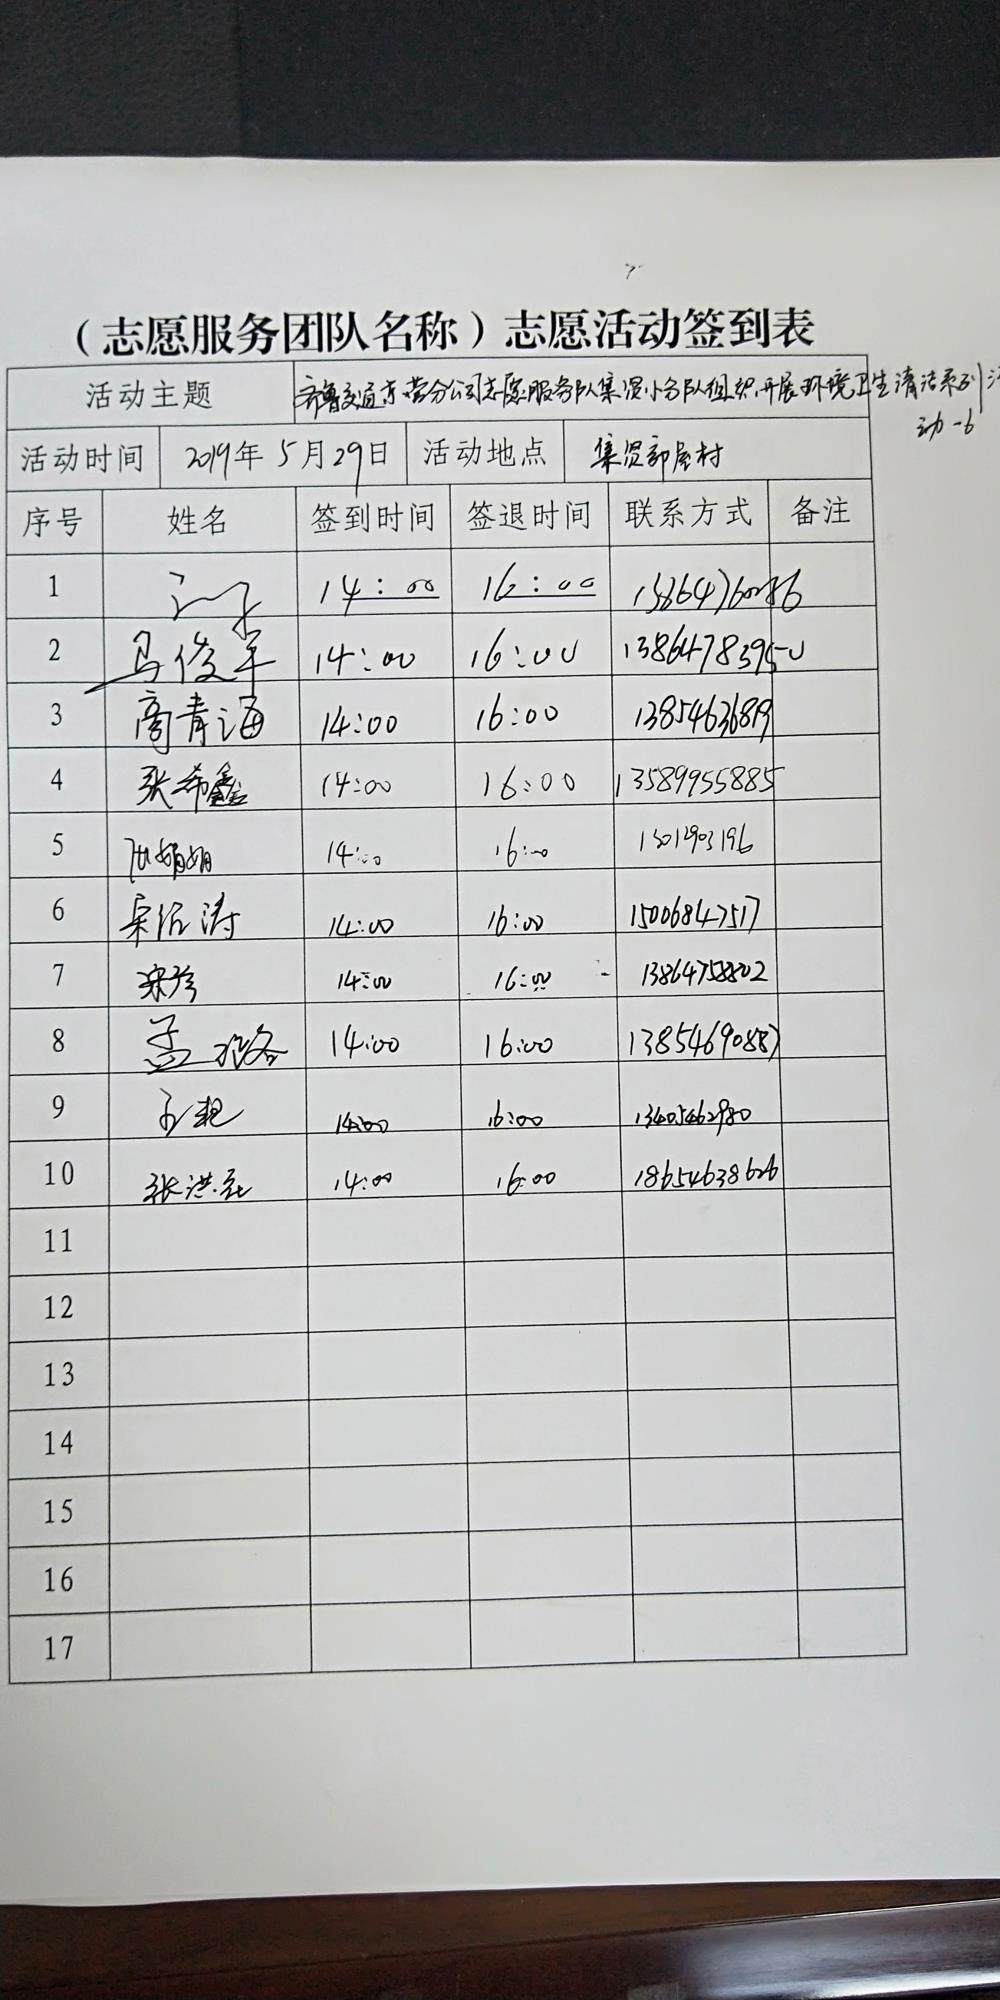 （志愿服务团队名称）志愿活动签到表
活动主题 齐鲁交通东营分公司志愿服务队集贤小分队组织开展环境卫生清洁系列活
动-6
活动时间 2019年5月29日 活动地点 集贤部屋村
序号 姓名 签到时间 签退时间 联系方式 备注
1 14:00 16:00
2 马俊军 14:00 16:00 13864783950
3 商青海 14:00 16:00 13854636819
4 张希鑫 14:00 16:00 13589955885
5 14:00 16:00
6 14:00 16:00 15006847517
7 14:00 16:00 13864758802
8 孟 14:00 16:00 13854690887
9 14:00 16:00 13405462980
10 张洪 14:00 16:00 18654638626
11
12
13
14
15
16
17